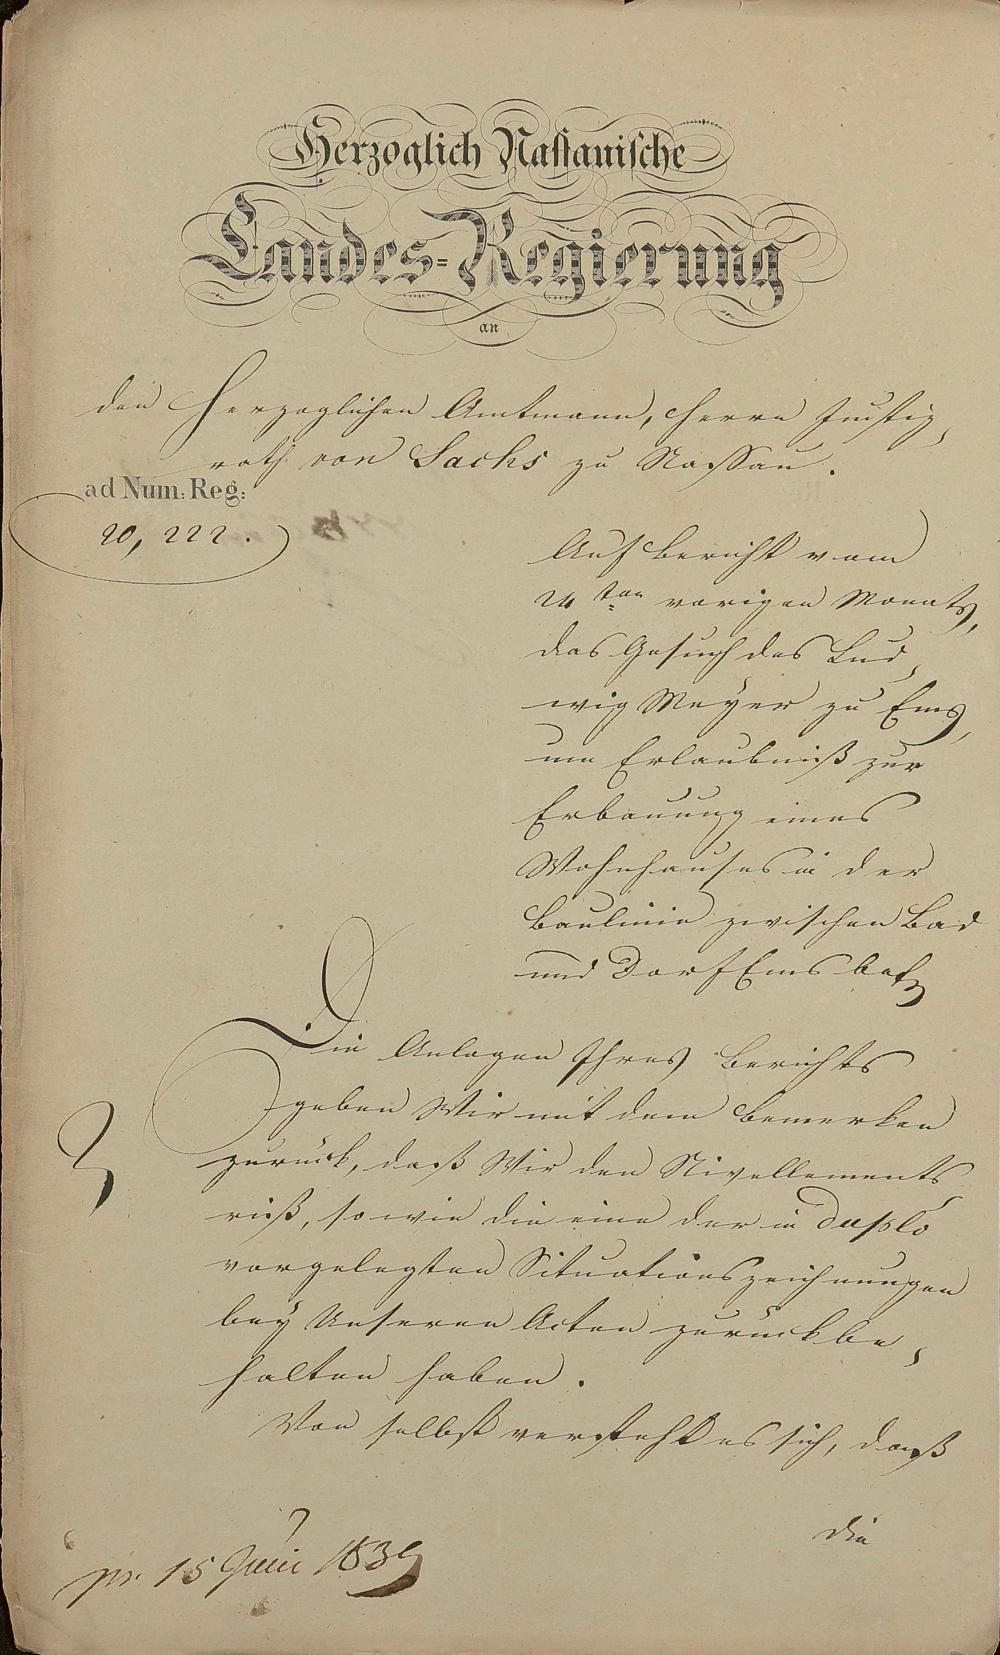 Herzoglich Nassauische
Landes-Regierung
an
den Herzoglichen Amtmann, Herrn Justiz,
rath von Sachs zu Nassau.
ad Num: Reg:
20,222.
Auf Bericht vom
24ten vorigen Monats,
das Gesuch des Lud,
wig Meyer zu Ems,
um Erlaubniß zur
Erbauung eines
Wohnhauses in der
Baulinie zwischen Bad
und Dorf Ems betr
Die Anlagen Ihres Berichts
geben Wir mit dem Bemerken
zurück, daß Wir den Nivellements
riß, so wie die eine der in duplo
vorgelegten Situationszeichnungen
bey Unseren Acten zurückbe,
halten haben.
Von selbst versteht es sich, daß
die
pr. 15 Juni 1839